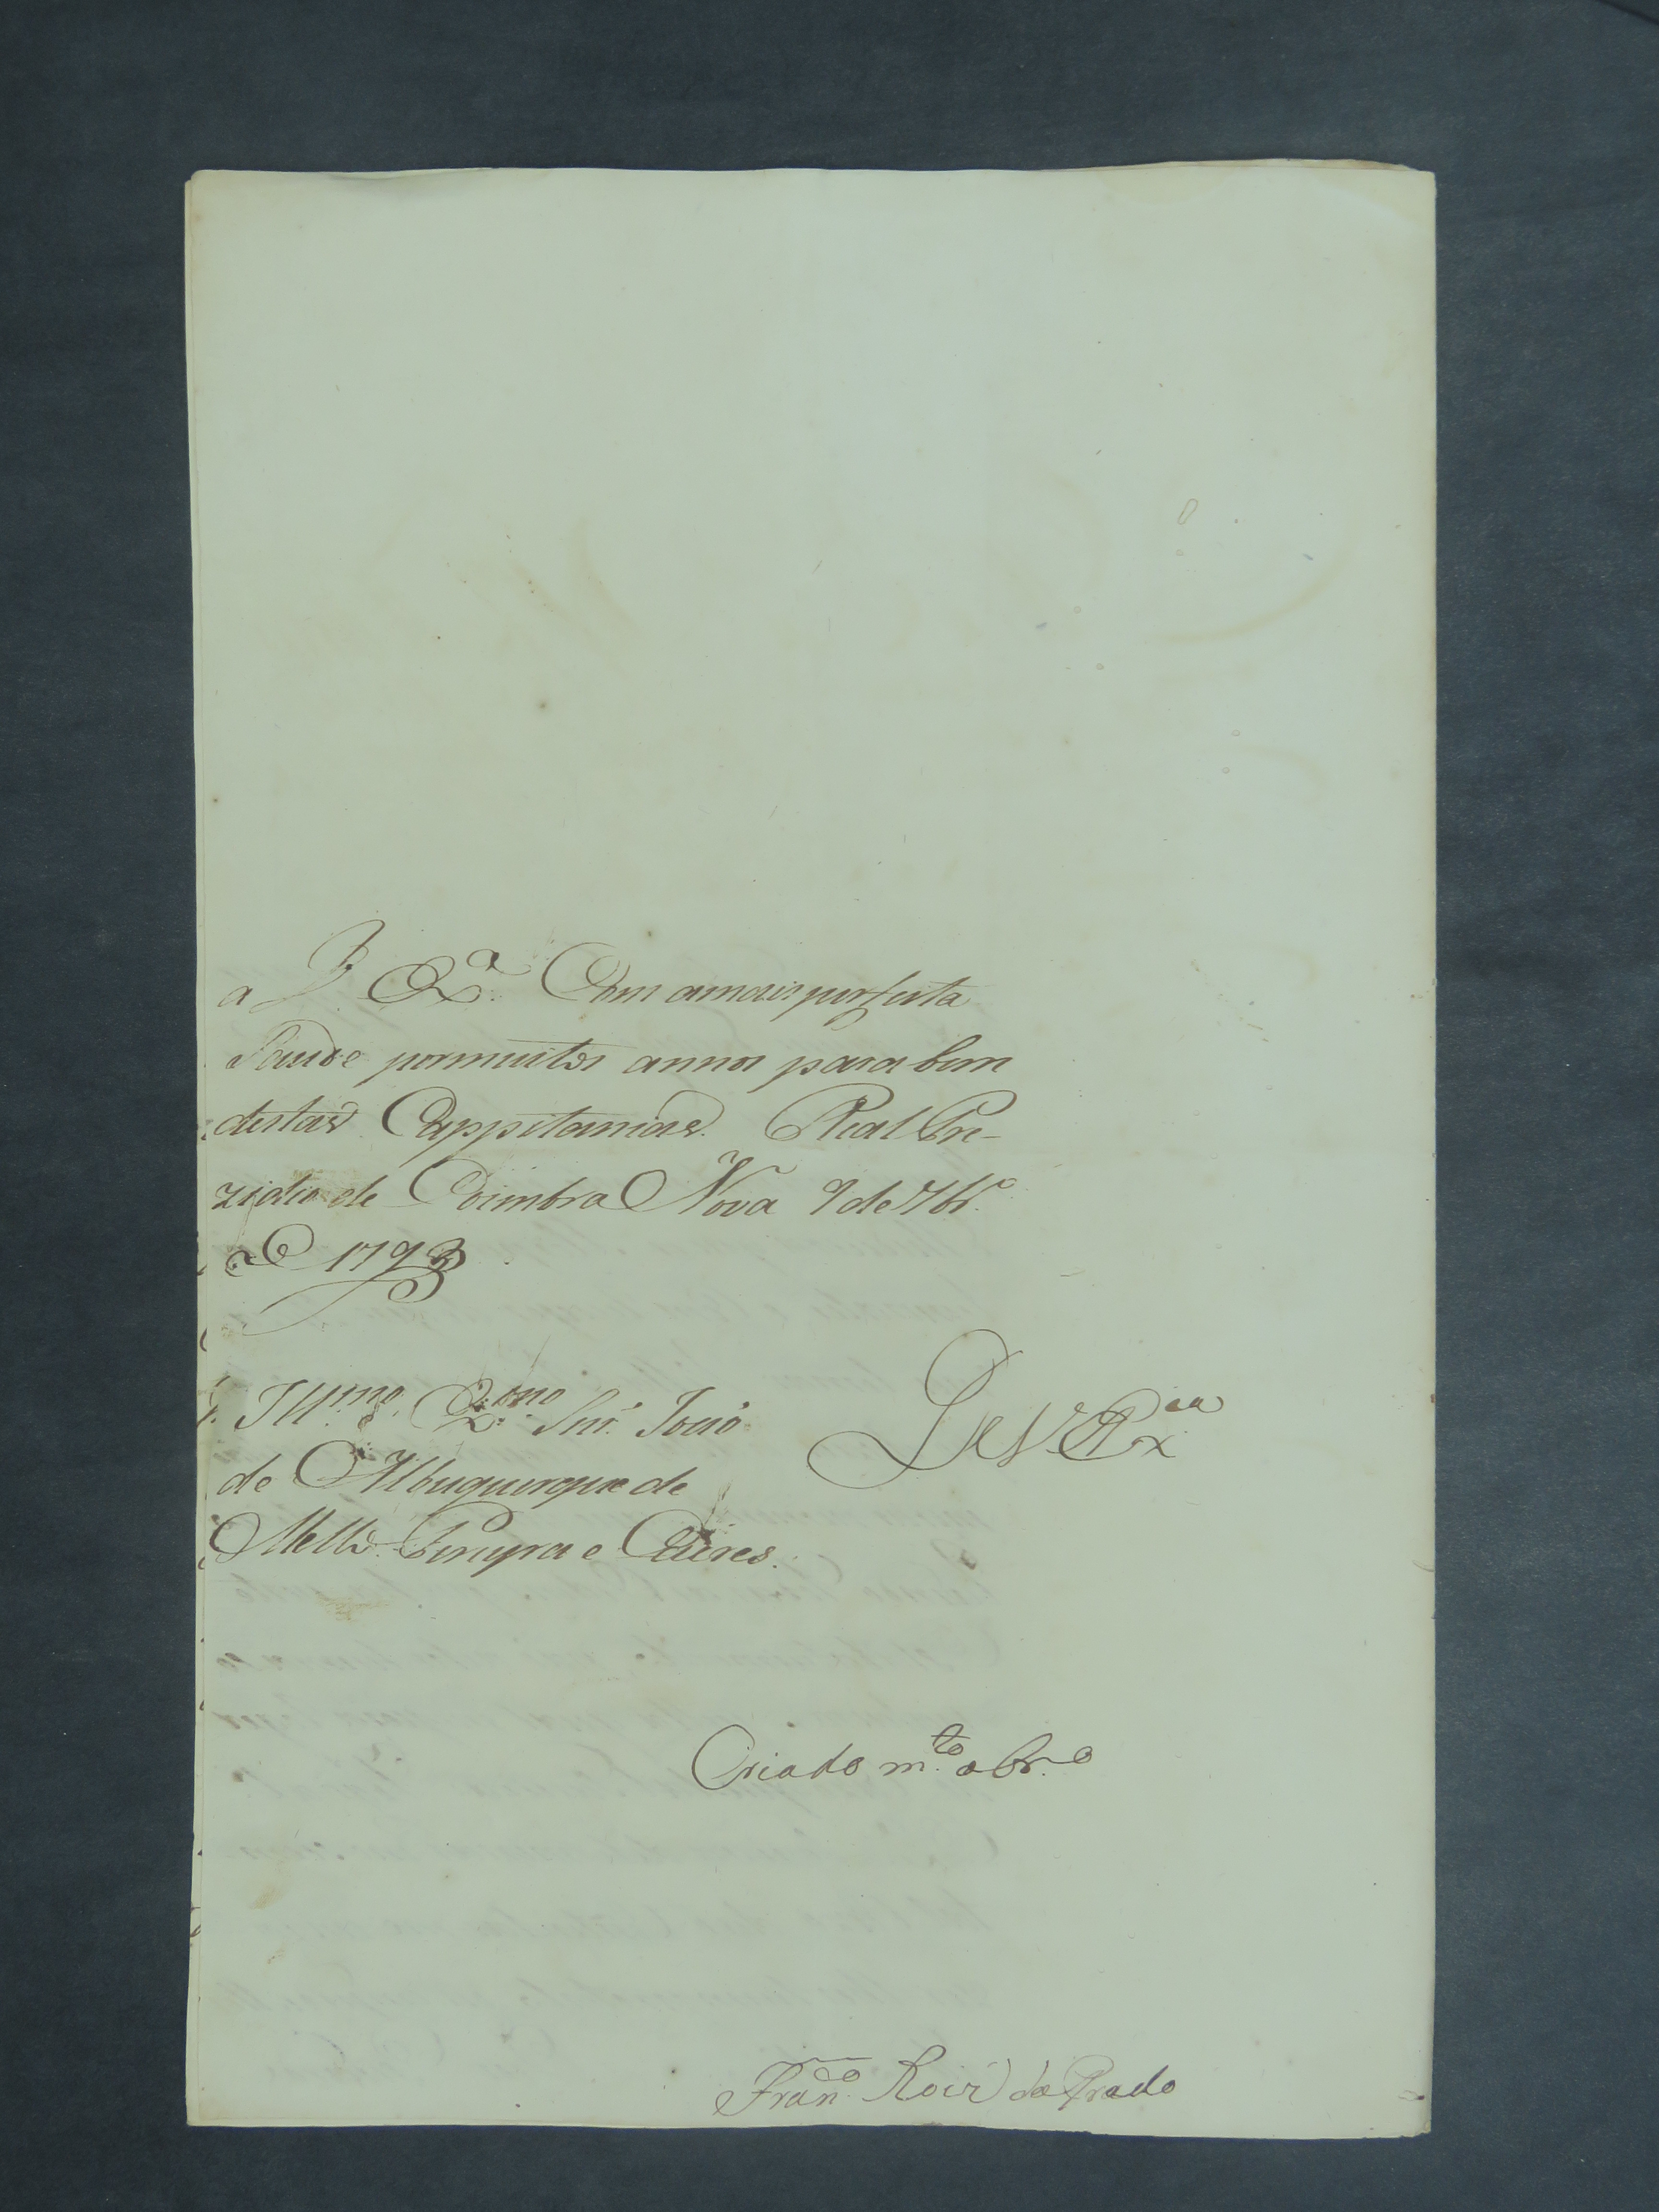 a V. Exª. Com amais perfeita
Saude pormuitos annos para bem
destas Cappitanias. Real Pre-
zidio de Coimbra Nova 9 de 7br.º
de 1793
Ill.mo e Ex.mo Snr. João
de Albuquerque de
Mello Pereyra e Caceres.
De V. Ex.cia
Criado m.to obr.o
Fran.co Roiz do Prado